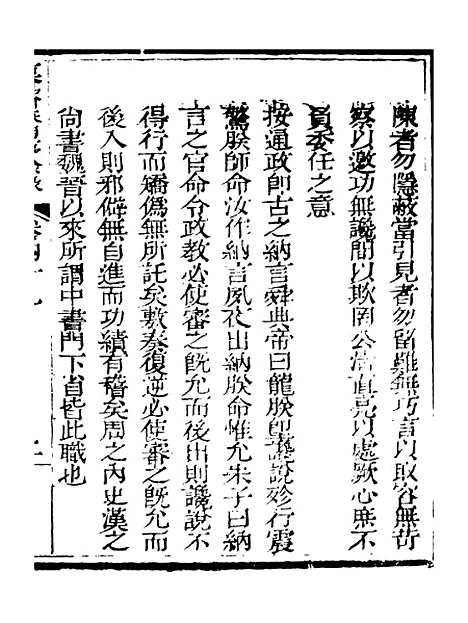 陳者勿隱蔽當引見者勿留難無巧言以取容無苛
察以邀功無讒間以欺罔公清直亮以處厥心庶不
負委任之意
按通政卽古之納言舜典帝曰龍朕堲讒說殄行震
驚朕師命汝作納言夙夜出納朕命惟允朱子曰納
言之官命令政教必使審之旣允而後出則讒說不
得行而矯僞無所託矣敷奏復逆必使審之旣允而
後入則邪僻無自進而功績有稽矣周之內史漢之
尙書魏晉以來所謂中書門下省皆此職也